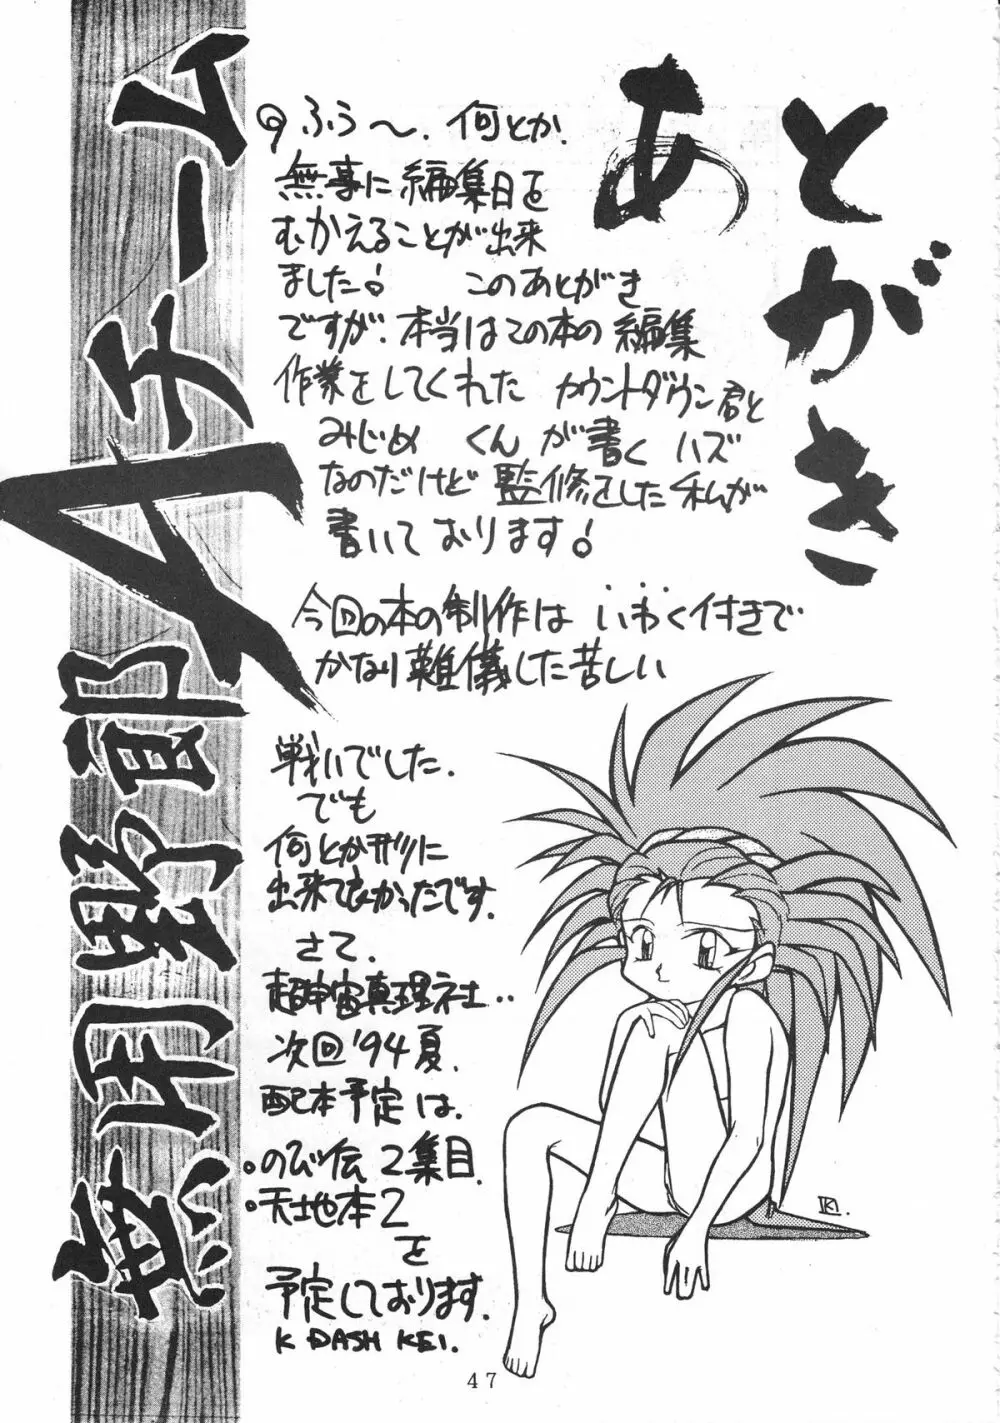 あとがき
ふう〜、何とか、
無事に編集日を
むかえることが出来
ました! このあとがき
ですが、本当はこの本の編集
作業をしてくれた カウントダウン君と
みじめ くんが書くハズ
なのだけど監修をした私が
書いております!
今回の本の制作は いわく付きで
かなり難儀した苦しい
戦いでした.
でも
何とか形に
出来て良かったです.
さて.
超宇宙真理社‥
次回'94夏.
配本予定は.
•のび伝2集目.
•天地本2
を
予定しております.
K DASH KEI.
熱用野郎Aチーム
47